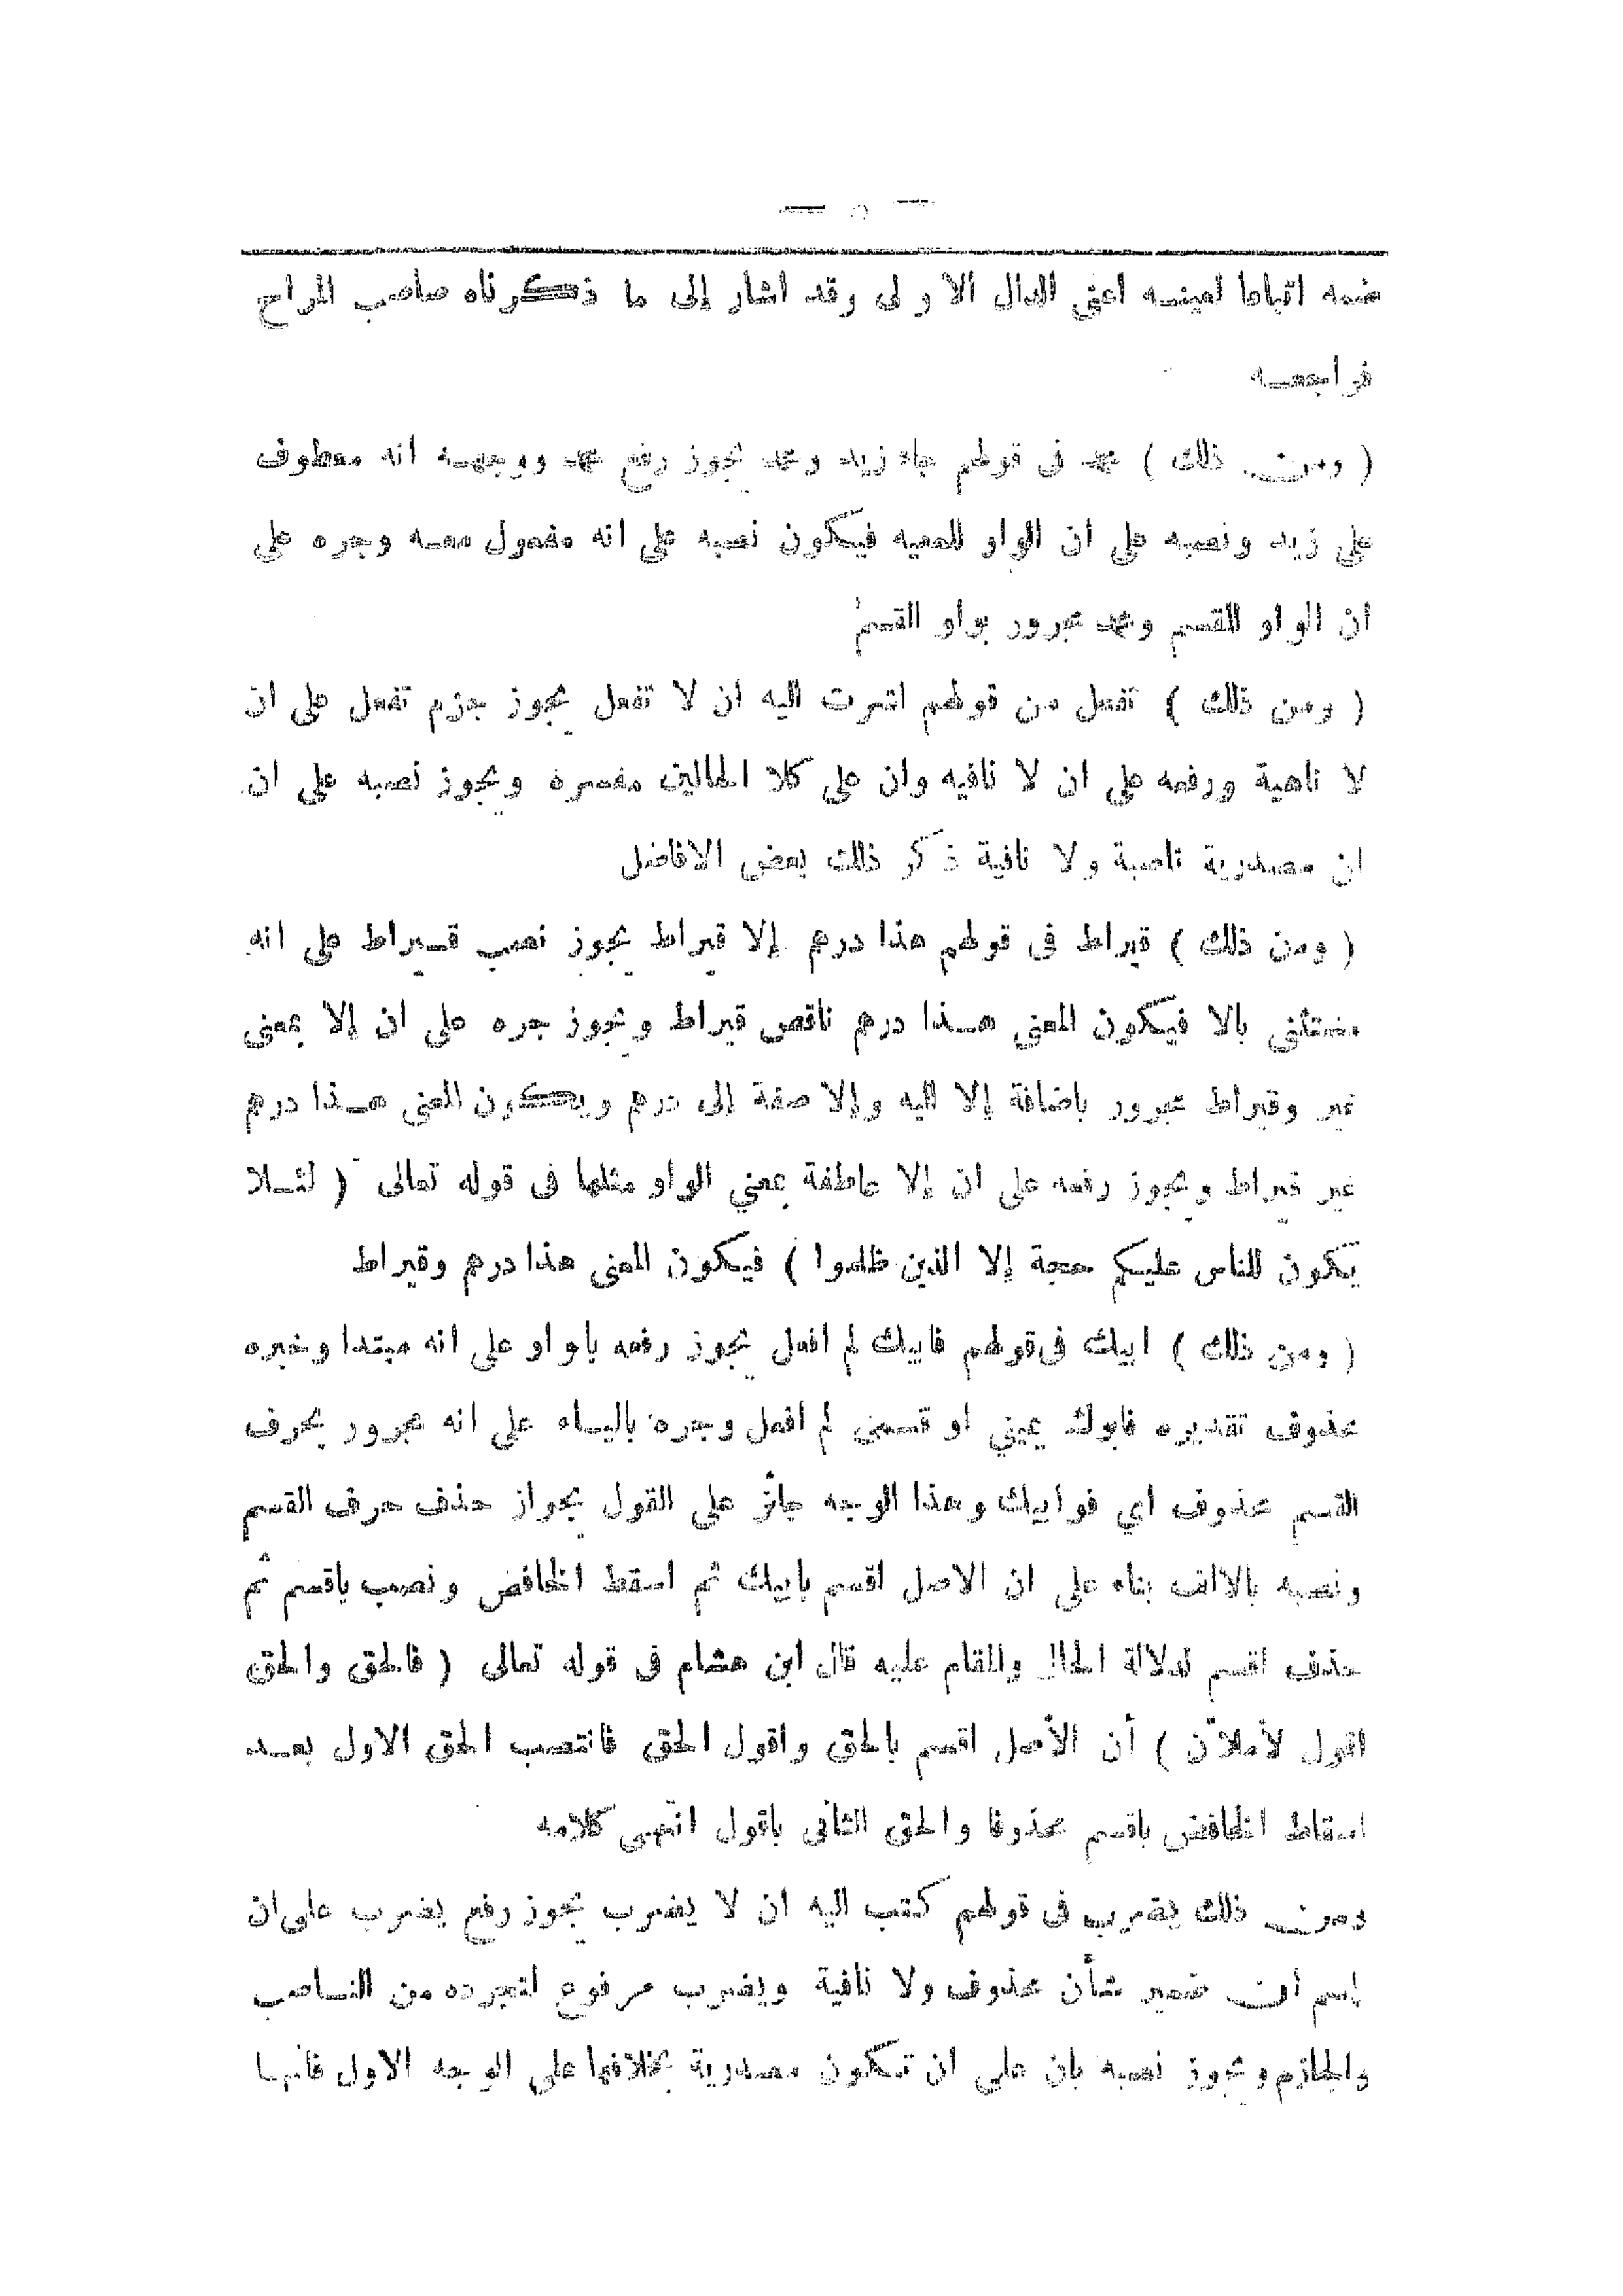 — ٥ —
ضمه اتباعا لعينه اعني الدال الاولى وقد اشار إلى ما ذكرناه صاحب المراح
فراجعه
( ومن ذلك ) محمد فى قولهم جاء زيد ومحمد يجوز رفع محمد ووجهه انه معطوف
على زيد ونصبه على ان الواو للمعيه فيكون نصبه على انه مفعول معه وجره على
ان الواو للقسم ومحمد مجرور بواو القسم
( ومن ذلك ) تفعل من قولهم اشرت اليه ان لا تفعل يجوز جزم تفعل على ان
لا ناهية ورفعه على ان لا نافيه وان على كلا الحالين مفسره ويجوز نصبه على ان
ان مصدرية ناصبة ولا نافية ذكر ذلك بعض الافاضل
( ومن ذلك ) قيراط فى قولهم هذا درهم إلا قيراط يجوز نصب قيراط على انه
مستثنى بالا فيكون المعنى هذا درهم ناقص قيراط ويجوز جره على ان إلا بمعنى
غير وقيراط مجرور باضافة إلا اليه وإلا صفة إلى درهم ويكون المعنى هذا درهم
غير قيراط ويجوز رفعه على ان إلا عاطفة بمعني الواو مثلها فى قوله تعالى ( لئلا
يكون للناس عليكم حجة إلا الذين ظلموا ) فيكون المعنى هذا درهم وقيراط
( ومن ذلك ) ابيك فى قولهم فابيك لم افعل يجوز رفعه باواو على انه مبتدا وخبره
محذوف تقديره فابوك يميني او قسمى لم افعل وجره بالياء على انه مجرور بحرف
القسم محذوف اي فوابيك وهذا الوجه جائز على القول بجواز حذف حرف القسم
ونصبه بالالف بناء على ان الاصل اقسم بابيك ثم اسقط الخافض ونصب باقسم ثم
حذف اقسم لدلالة الحال والمقام عليه قال ابن هشام فى قوله تعالى ( فالحق والحق
اقول لأملأن ) أن الأصل اقسم بالحق واقول الحق فانتصب الحق الاول بعد
اسقاط الخافض باقسم محذوفا والحق الثاني باقول انتهى كلامه
ومن ذلك يضرب فى قولهم كتب اليه ان لا يضرب يجوز رفع يضرب على ان
اسم أن ضمير شأن محذوف ولا نافية ويضرب مرفوع لتجرده من الناصب
والجازم ويجوز نصبه بان على ان تكون مصدرية بخلافها على الوجه الاول فانها